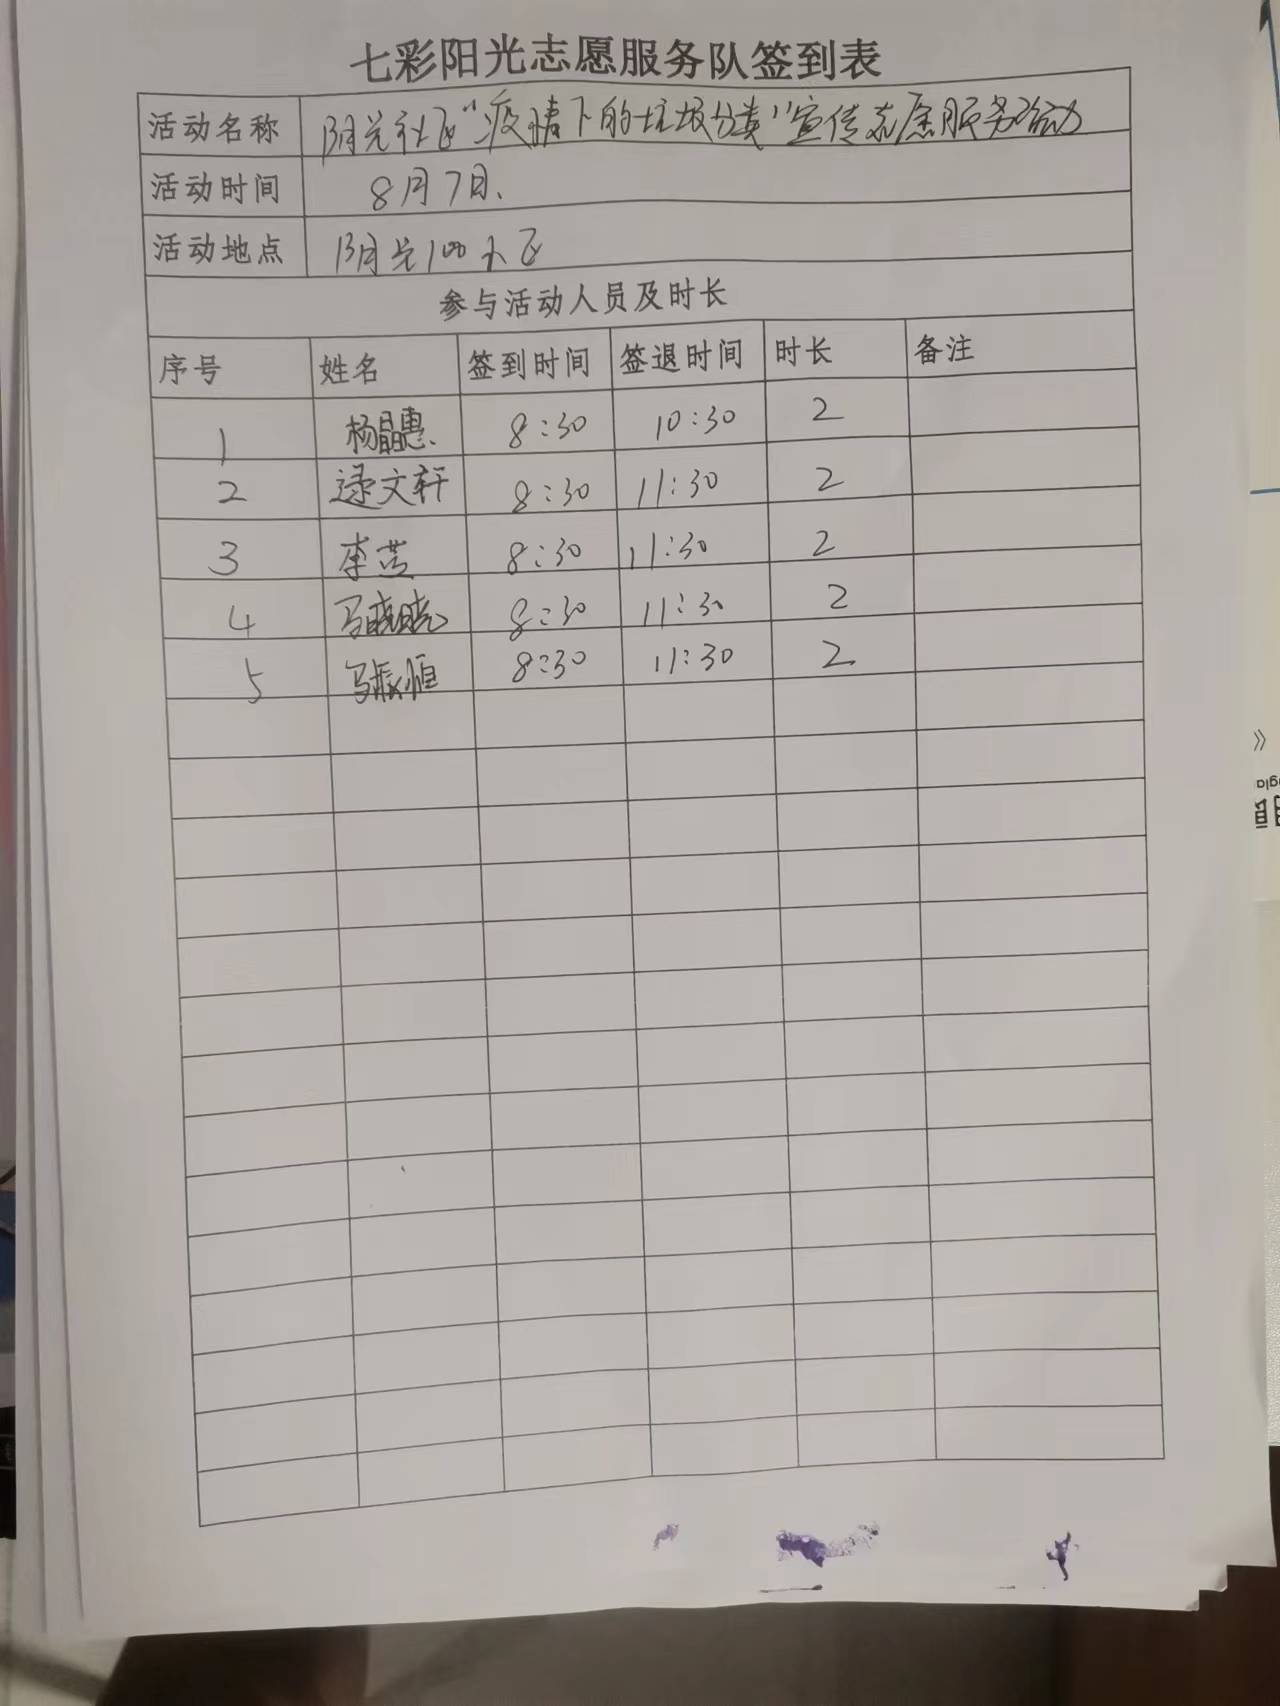 七彩阳光志愿服务队签到表
活动名称 阳光社区“疫情下的垃圾分类”宣传志愿服务活动
活动时间 8月7日、
活动地点 阳光100小区
参与活动人员及时长
序号 姓名 签到时间 签退时间 时长 备注
1 杨晶惠 8:30 10:30 2
2 逯文轩 8:30 11:30 2
3 李芸 8:30 11:30 2
4 马晓晓 8:30 11:30 2
5 马振恒 8:30 11:30 2